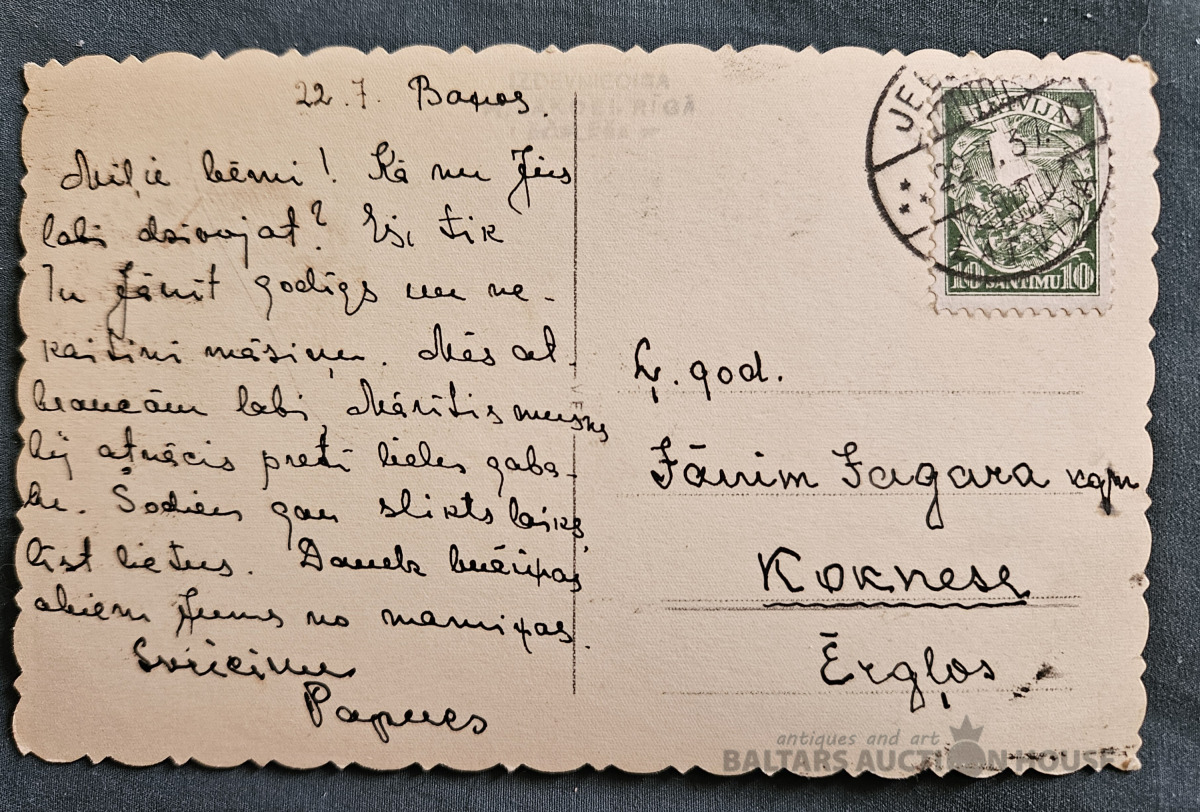 22.7. Baņos.
Mīļie bērni! Kā nu Jūs
labi dzīvojat? Esi tik
Tu Jānīt godīgs un ne-
kaitini māsiņu. Mēs at-
braucām labi, Mārītis
atnācis pretī lielu gaba-
lu. Šodien gan slikts laiks,
līst lietus. Daudz bučiņas
abiem Jums no mamiņas.
Sveicinu
Papucs
IZDEVNIECIBA
RĪGĀ
LATVIJA
10 SANTIMU 10
JEL
LATVIJA
Ļ. god.
Jānim Zagara kgm
Koknesē
Ērgļos
antiques and art
BALTARS AUCTION HOUSE